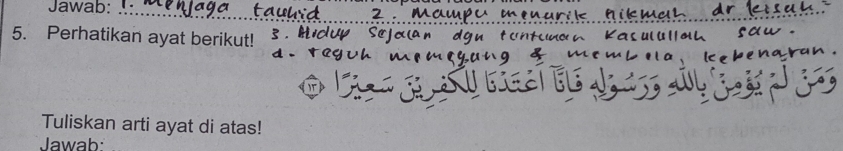 Jawab: 1. menjaga tauhid 2. mampu menarik hikmah dr kisah.
5. Perhatikan ayat berikut! 3. Hidup sejalan dgn tuntunan Rasulullah saw.
d. teguh memegang & membela kebenaran.
وَمَنْ لَّمْ يُؤْمِنْۢ بِاللّٰهِ وَرَسُوْلِهٖ فَاِنَّآ اَعْتَدْنَا لِلْكٰفِرِيْنَ سَعِيْرًا ﴿١٣﴾
Tuliskan arti ayat di atas!
Jawab: